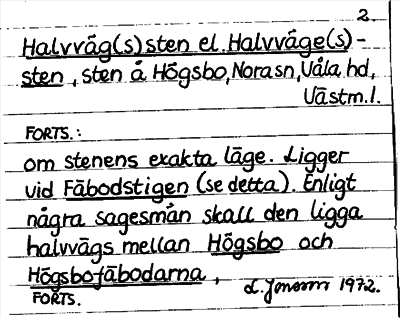 2.
Halvväg(s)sten el. Halvväge(s)-
sten, sten å Högsbo, Nora sn, Våla hd,
Västm. l.
FORTS.:
om stenens exakta läge. Ligger
vid Fäbodstigen (se detta). Enligt
några sagesmän skall den ligga
halvvägs mellan Högsbo och
Högsbofäbodarna,
FORTS. L. Jonsson 1972.